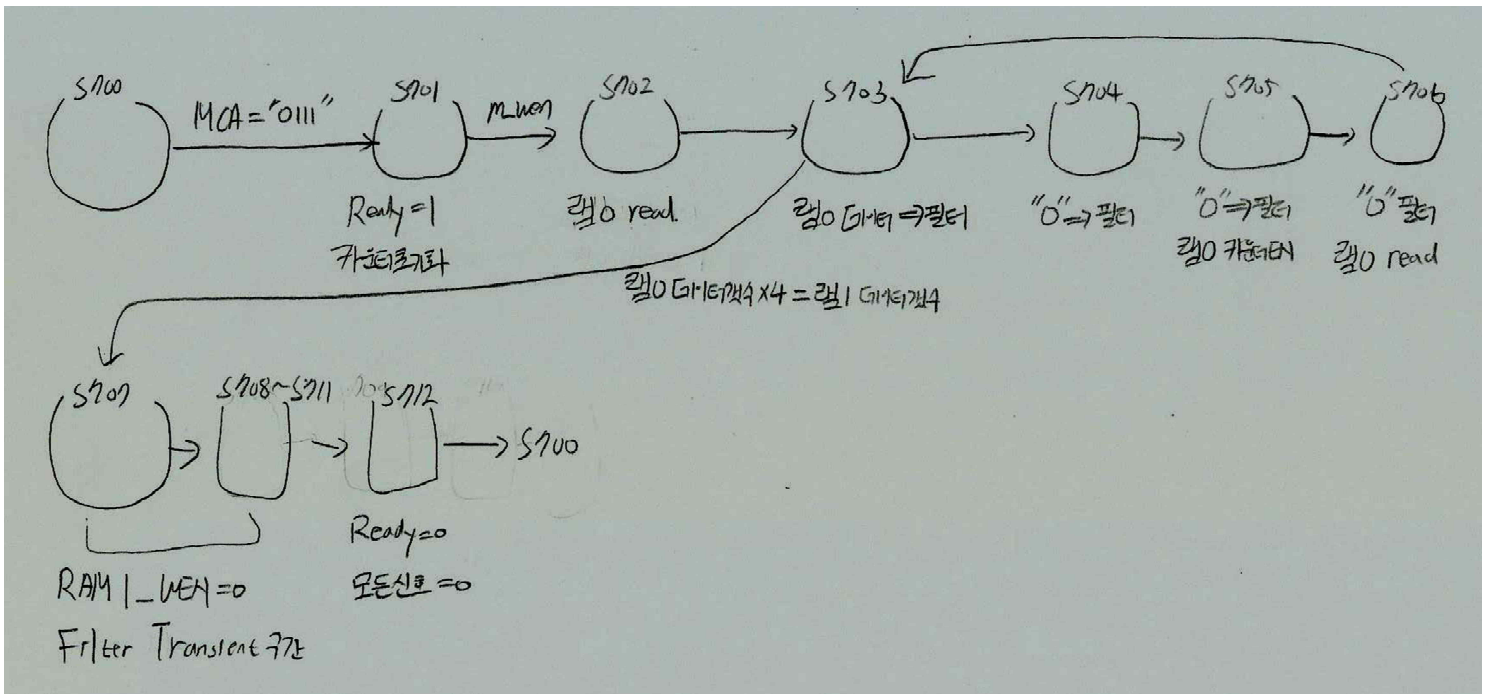 S700
MCA="0111"
S701
m_wen
S702
S703
S704
S705
S706
Ready=1
카운터초기화
램0 read.
램0 데이터⇒필터
"0"⇒필터
"0"⇒필터
램0 카운터EN
"0"필터
램0 read
램0 데이터갯수×4=램1 데이터갯수
S707
S708~S711
S712
S700
RAM1_WEN=0
Filter Transient구간
Ready=0
모든신호=0